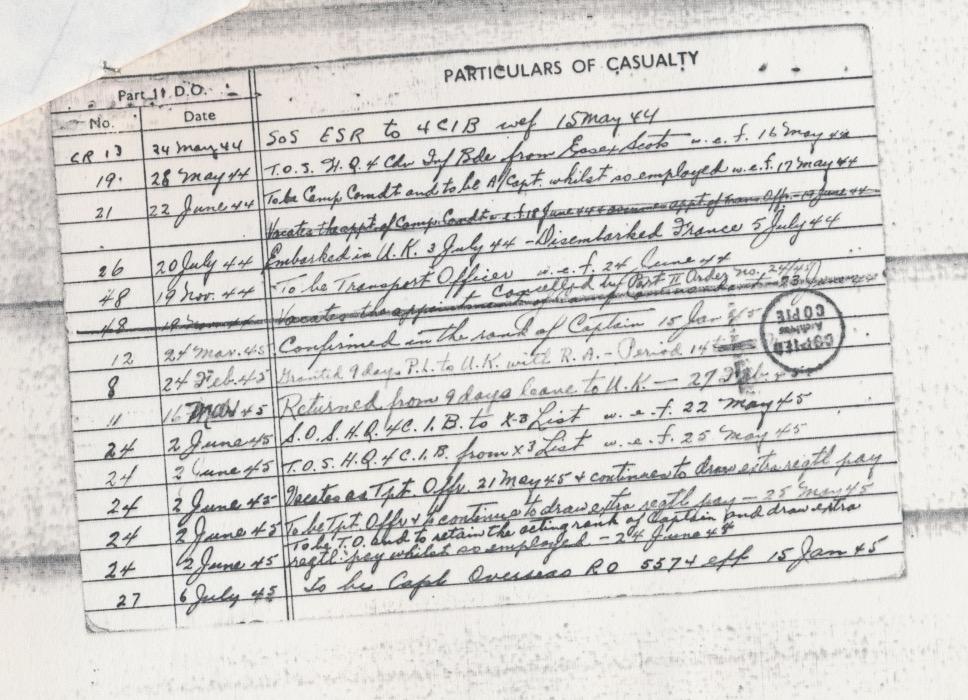 PARTICULARS OF CASUALTY
Part II D.O.
No. Date
CR 13 24 May 44 SoS ESR to 4CIB wef 15 May 44
19. 28 May 44 T.O.S. H.Q. 4 Cdn Inf Bde from Essex Scots w.e.f. 16 May 44
21 22 June 44 To be Camp Comdt and to be A/Capt. whilst so employed w.e.f. 17 May 44
Vacates the appt. of Camp. Comdt w.e.f. 18 June 44 & assumes appt of Trans. Offr. - 19 June 44
26 20 July 44 Embarked in U.K. 3 July 44 - Disembarked France 5 July 44
48 19 Nov. 44 To be Transport Officer w.e.f. 24 June 44
Cancelled by Part II Order No. 24/45
48 19 Nov 44 Vacates the appointment of Camp Commandant - 23 June 44
12 24 Mar. 45 Confirmed in the rank of Captain 15 Jan 45
8 24 Feb. 45 Granted 9 days P.L. to U.K. with R.A. - Period 14
11 16 Mar 45 Returned from 9 days leave to U.K - 27 Feb.
24 2 June 45 S.O.S. H.Q. 4C.I.B. to X-3 List w.e.f. 22 May 45
24 2 June 45 T.O.S. H.Q. 4 C.I.B. from X3 List w.e.f. 25 May 45
24 2 June 45 Vacates as Tpt. Offr. 21 May 45 & continues to draw extra regtl pay
24 2 June 45 To be Tpt. Offr & to continue to draw extra regtl pay - 25 May 45
24 2 June 45 To be T.O. and to retain the acting rank of Captain and draw extra
regtl. pay whilst so employed - 24 June 44
27 6 July 45 To be Capt Overseas RO 5574 eff 15 Jan 45
COPIED
Archives
COPIE